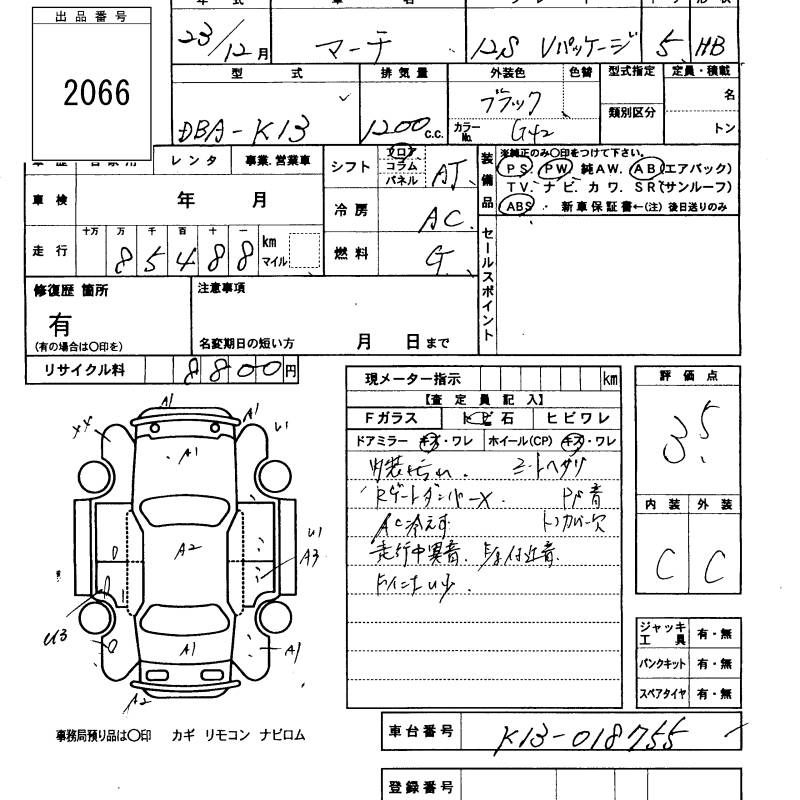 出品番号
2066
23/12月 マーチ 12S Vパッケージ 5 HB
型式 排気量 外装色 色替 型式指定 定員・積載
DBA-K13 1200c.c. ブラック 類別区分 名
カラーNo. G42 トン
レンタ 事業.営業車
シフト フロア コラム パネル AT
装備品 ※純正のみ○印をつけて下さい。
PS. PW. 純AW. AB(エアバック)
TV. ナビ. カワ. SR(サンルーフ)
ABS. 新車保証書←(注) 後日送りのみ
車検 年 月
冷房 AC
走行 十万 万 千 百 十 一 km マイル
85488
燃料 G
セールスポイント
修復歴 箇所 注意事項
有
(有の場合は○印を) 名変期日の短い方 月 日まで
リサイクル料 8800円
現メーター指示 km
評価点
【査定員記入】
Fガラス トビ石 ヒビワレ
ドアミラー キズ・ワレ ホイール(CP) キズ・ワレ
3.5
内装汚れ. シートヘタリ
Rゲートダンパー×. P/S音
AC冷えず トノカバー欠
走行中異音.
内装 外装
C C
A1 A1 U1 XX A1 A2 U1 A3 U3 A1 A1 A2
ジャッキ工具 有・無
パンクキット 有・無
スペアタイヤ 有・無
事務局預り品は○印 カギ リモコン ナビロム
車台番号 K13-018755
登録番号